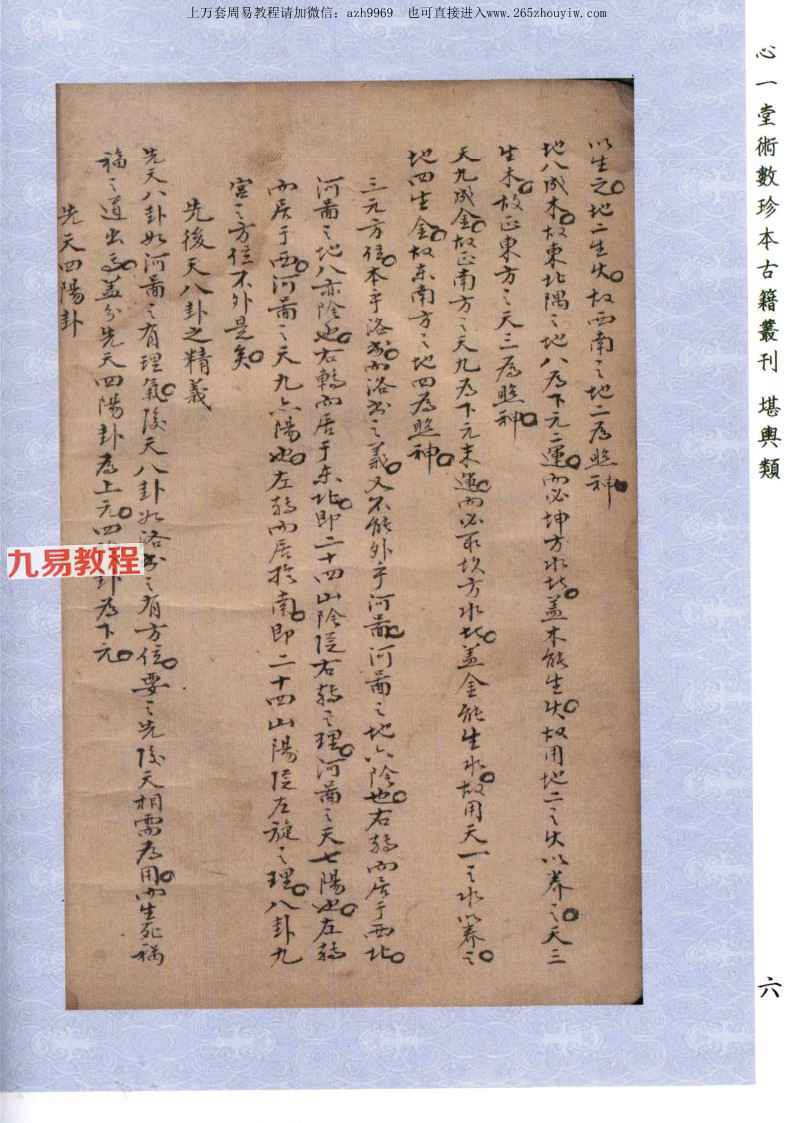 上万套周易教程请加微信：azh9969 也可直接进入www.265zhouyiw.com
心一堂術數珍本古籍叢刊 堪輿類
六
以生之。地二生火。故西南之地二為照神。
地八成木。故東北隅之地八為下元二運。而必坤方水者。蓋木能生火。故用地二之火以養之。天三
生木。故正東方之天三為照神。
天九成金。故正南方之天九為下元末運。而必取坎方水者。蓋金能生水。故用天一之水以養之。
地四生金。故东南方之地四為照神。
三元方位。本乎洛書。而洛書之義。又不能外乎河圖。河圖之地六陰也。右轉而居于西北。
河圖之地八亦陰也。右轉而居于东北。即二十四山陰從右轉之理。河圖之天七陽也。左轉
而居于西。河圖之天九亦陽也。左轉而居於南。即二十四山陽從左旋之理。八卦九
宮之方位不外是矣。
先後天八卦之精義
先天八卦如河圖之有理氣。後天八卦如洛書之有方位。要之先後天相需為用。而生死禍
福之道出焉。蓋分先天四陽卦為上元。四卦為下元。
先天四陽卦
九易教程